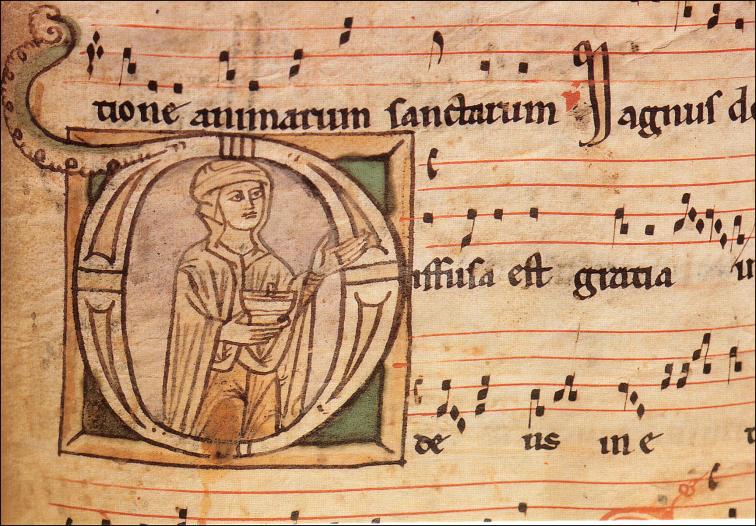 tione animarum sanctarum Magnus de
Diffusa est gratia
de us in e